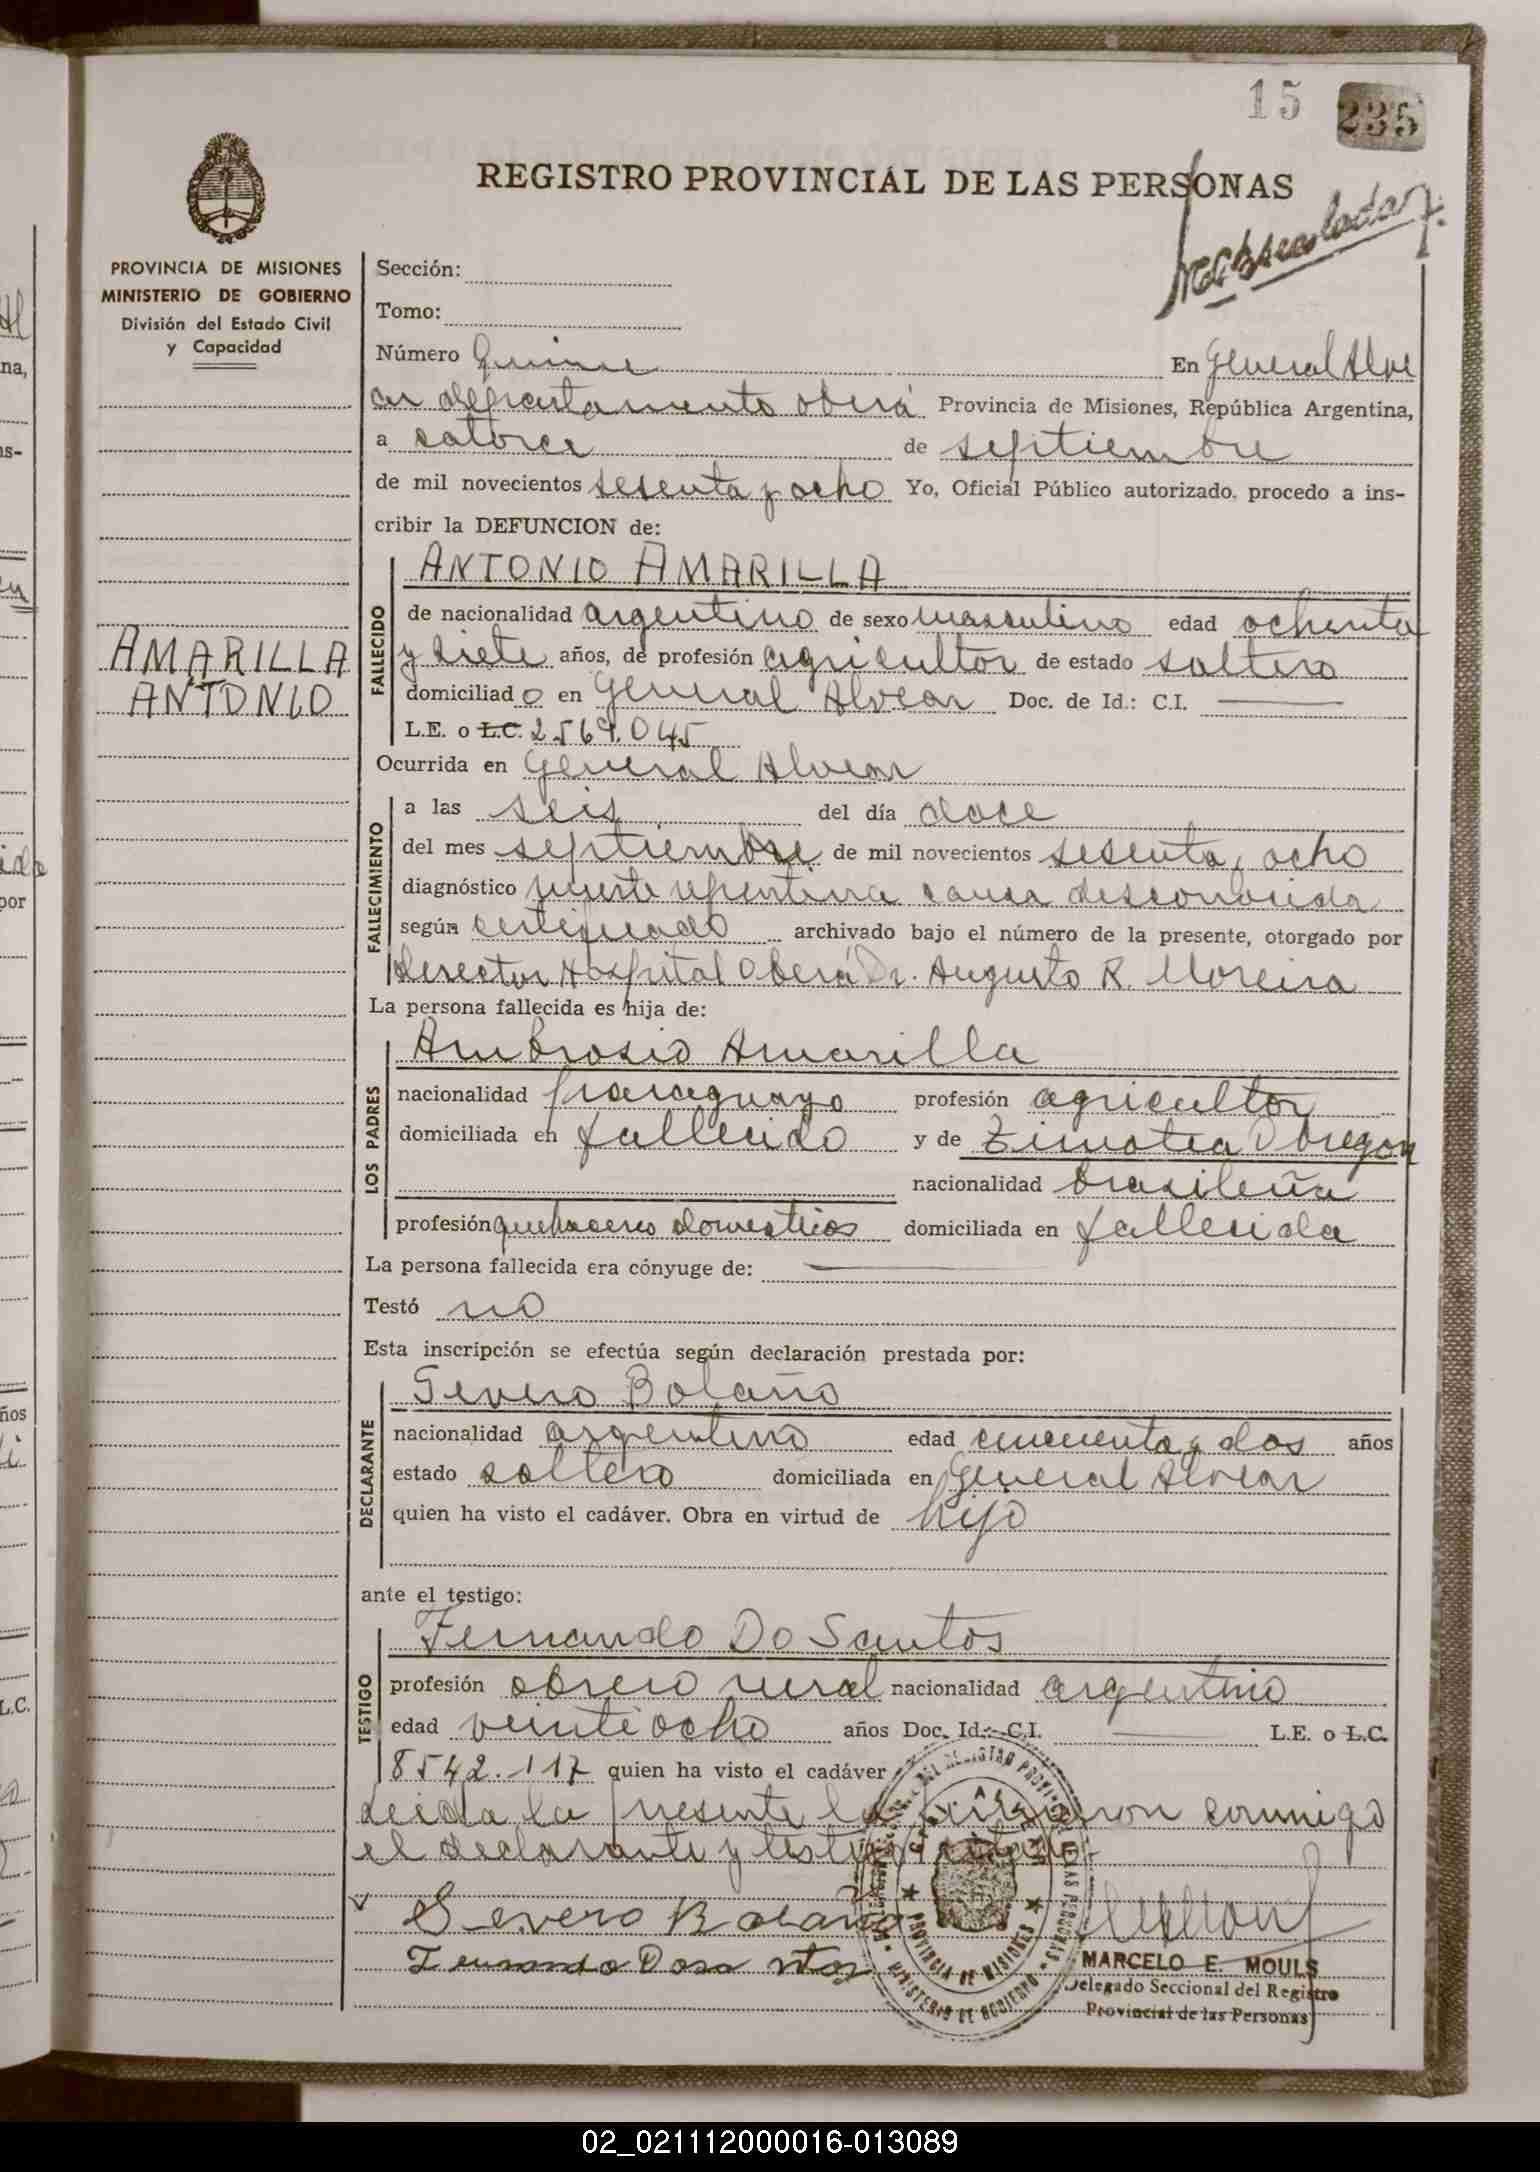 15 235
REGISTRO PROVINCIAL DE LAS PERSONAS
PROVINCIA DE MISIONES
MINISTERIO DE GOBIERNO
División del Estado Civil
y Capacidad
AMARILLA
ANTONIO
Sección:
Tomo:
Número Quince En General Alve
ar departamento Oberá Provincia de Misiones, República Argentina,
a catorce de septiembre
de mil novecientos sesenta y ocho Yo, Oficial Público autorizado, procedo a ins-
cribir la DEFUNCION de:
FALLECIDO
ANTONIO AMARILLA
de nacionalidad argentino de sexo masculino edad ochenta
y siete años, de profesión agricultor de estado soltero
domiciliado en General Alvear Doc. de Id.: C.I.
L.E. o L.C. 2.569.045
Ocurrida en General Alvear
FALLECIMIENTO
a las seis del día doce
del mes septiembre de mil novecientos sesenta y ocho
diagnóstico muerte repentina causa desconocida
según certificado archivado bajo el número de la presente, otorgado por
Director Hospital Oberá Dr. Augusto R. Moreira
La persona fallecida es hija de:
LOS PADRES
Ambrosio Amarilla
nacionalidad paraguayo profesión agricultor
domiciliada en fallecido y de Timotea Obregon
nacionalidad brasileña
profesión quehaceres domesticos domiciliada en fallecida
La persona fallecida era cónyuge de:
Testó no
Esta inscripción se efectúa según declaración prestada por:
DECLARANTE
Severo Bolaño
nacionalidad argentino edad cincuenta y dos años
estado soltero domiciliada en General Alvear
quien ha visto el cadáver. Obra en virtud de hijo
ante el testigo:
TESTIGO
Fernando Do Santos
profesión obrero rural nacionalidad argentino
edad veintiocho años Doc. Id.: C.I. L.E. o L.C.
8542.117 quien ha visto el cadáver
Leida la presente la firmaron conmigo
el declarante y testigo
Severo Bolaño
Fernando Dosantos
PROVINCIA DE MISIONES
MINISTERIO DE GOBIERNO
MARCELO E. MOULS
Delegado Seccional del Registro
Provincial de las Personas
02_021112000016-013089